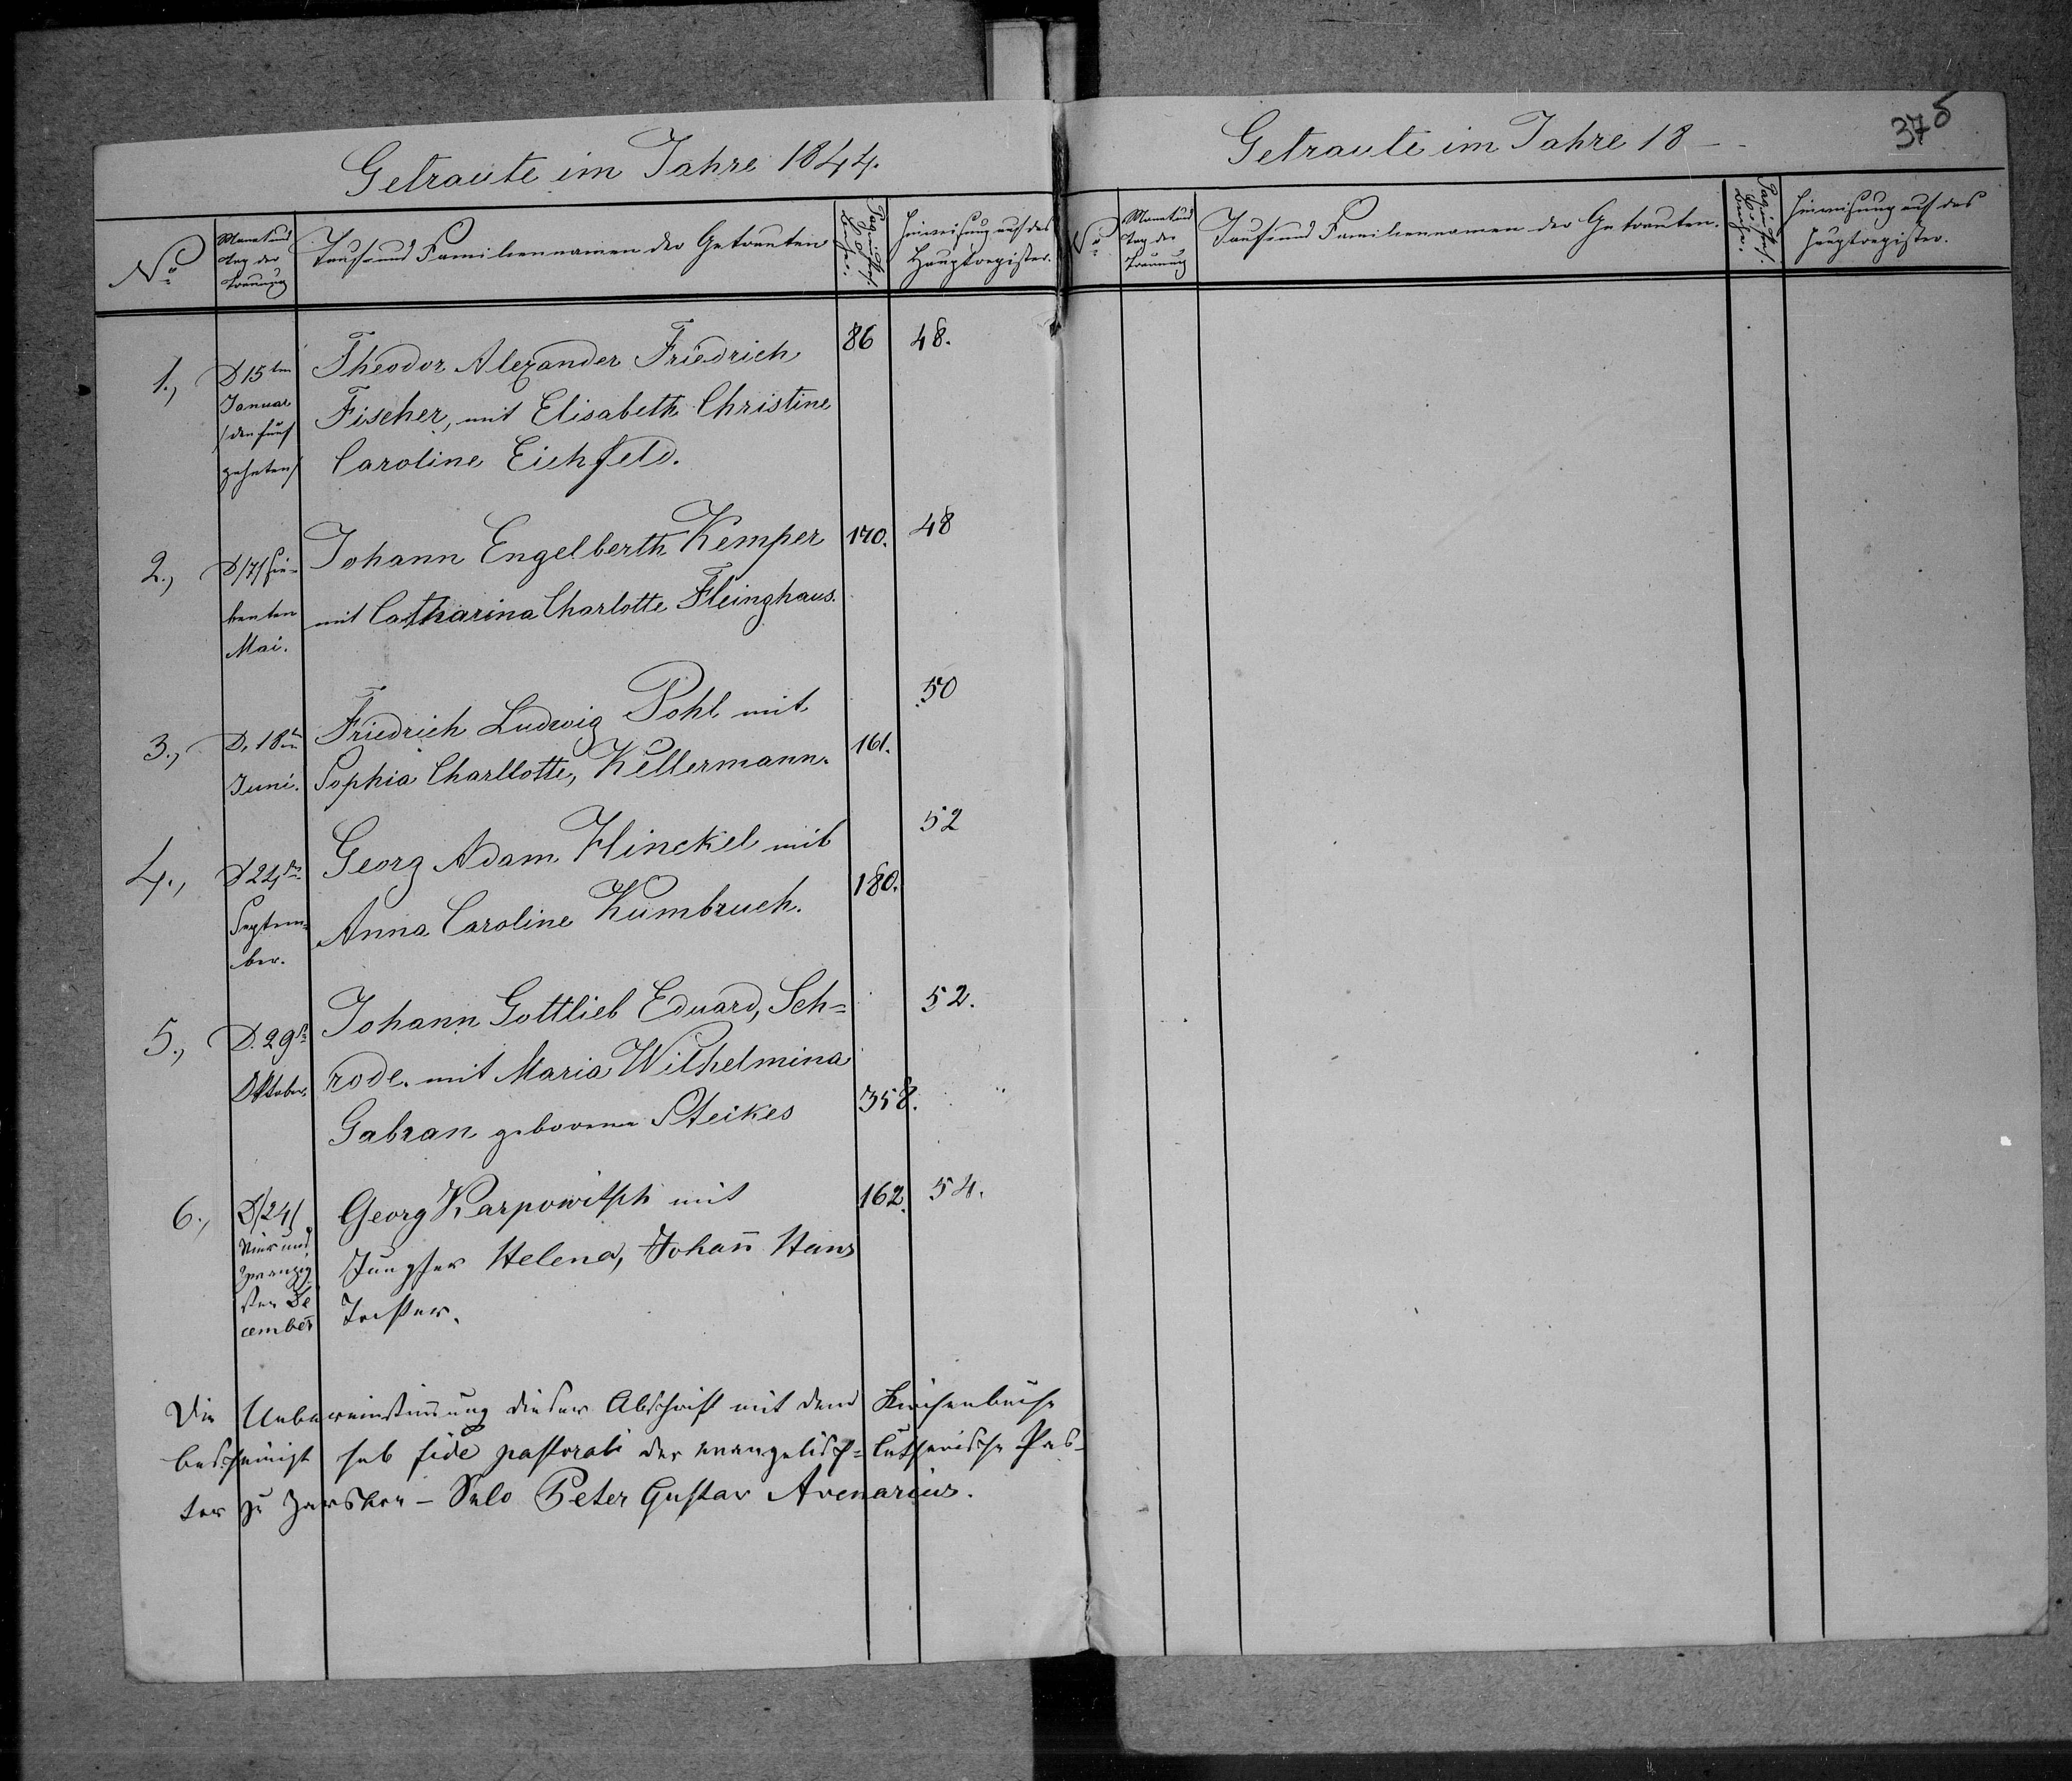 Getraute im Jahre 1844.
No
Monat und
Tag der
Trauung
Tauf- und Familiennamen der Getrauten
Hinweisung auf das
Hauptregister.
1.,
D 15ten
Januar
/den fünf
zehnten/
Theodor Alexander Friedrich
Fischer, mit Elisabeth Christine
Caroline Eichfeld.
86
48.
2.,
D /7/ sie-
benten
Mai.
Johann Engelberth Kemper
mit Catharina Charlotte Fleinghaus.
170.
48
3.,
D. 18ten
Juni.
Friedrich Ludwig Pohl mit
Sophia Charllotte, Kellermann.
161.
50
4.,
D 24ten
Septem-
ber.
Georg Adam Hinckel mit
Anna Caroline Kumbruch.
180.
52
5.,
D. 29ten
Oktober.
Johann Gottlieb Eduard, Sch=
rode. mit Maria Wilhelmina
Gabran geborene Steikes
358.
52.
6.,
D/24/
Vier und
zwanzig
sten De
cember
Georg Karpowitsch mit
Jungfer Helena, Johann Hans
Tochter.
162.
54.
Die Uebereinstimmung dieser Abschrift mit dem Kirchenbuche
bescheinigt sub fide pastorali der evangelisch=lutherische Pas-
tor zu Zarskoe-Selo Peter Gustav Avenarius.
Getraute im Jahre 18 --
375
No
Monat und
Tag der
Trauung
Tauf- und Familiennamen der Getrauten.
Hinweisung auf das
Hauptregister.